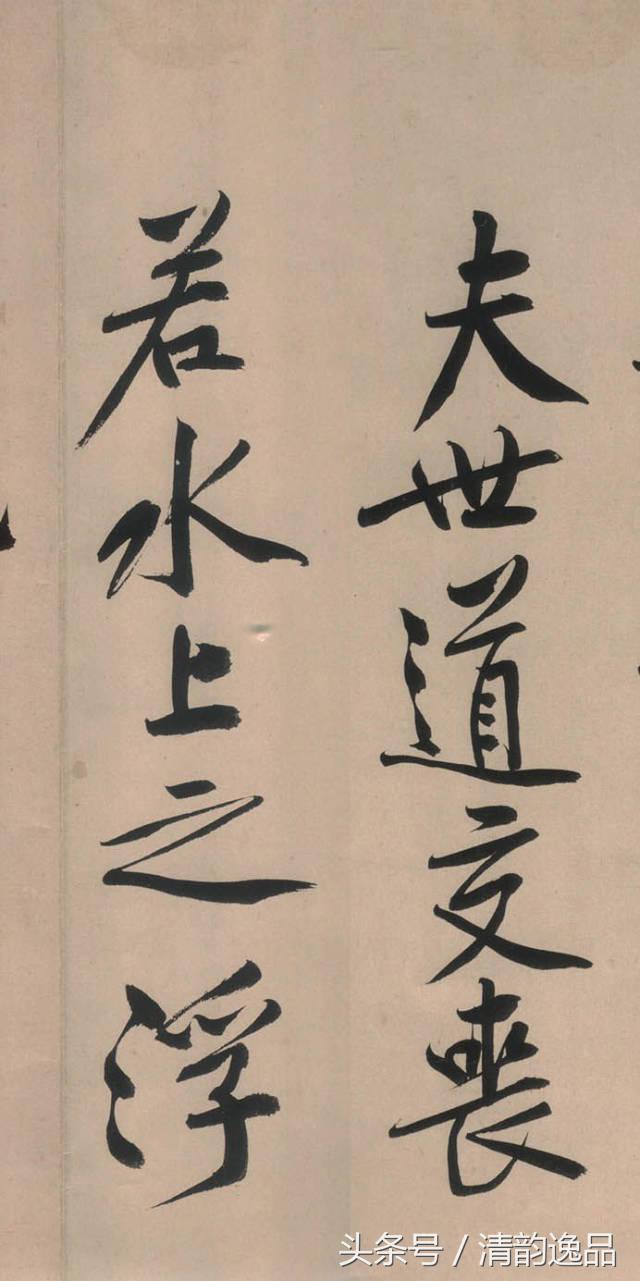 夫世道交喪
若水上之浮
头条号 / 清韵逸品